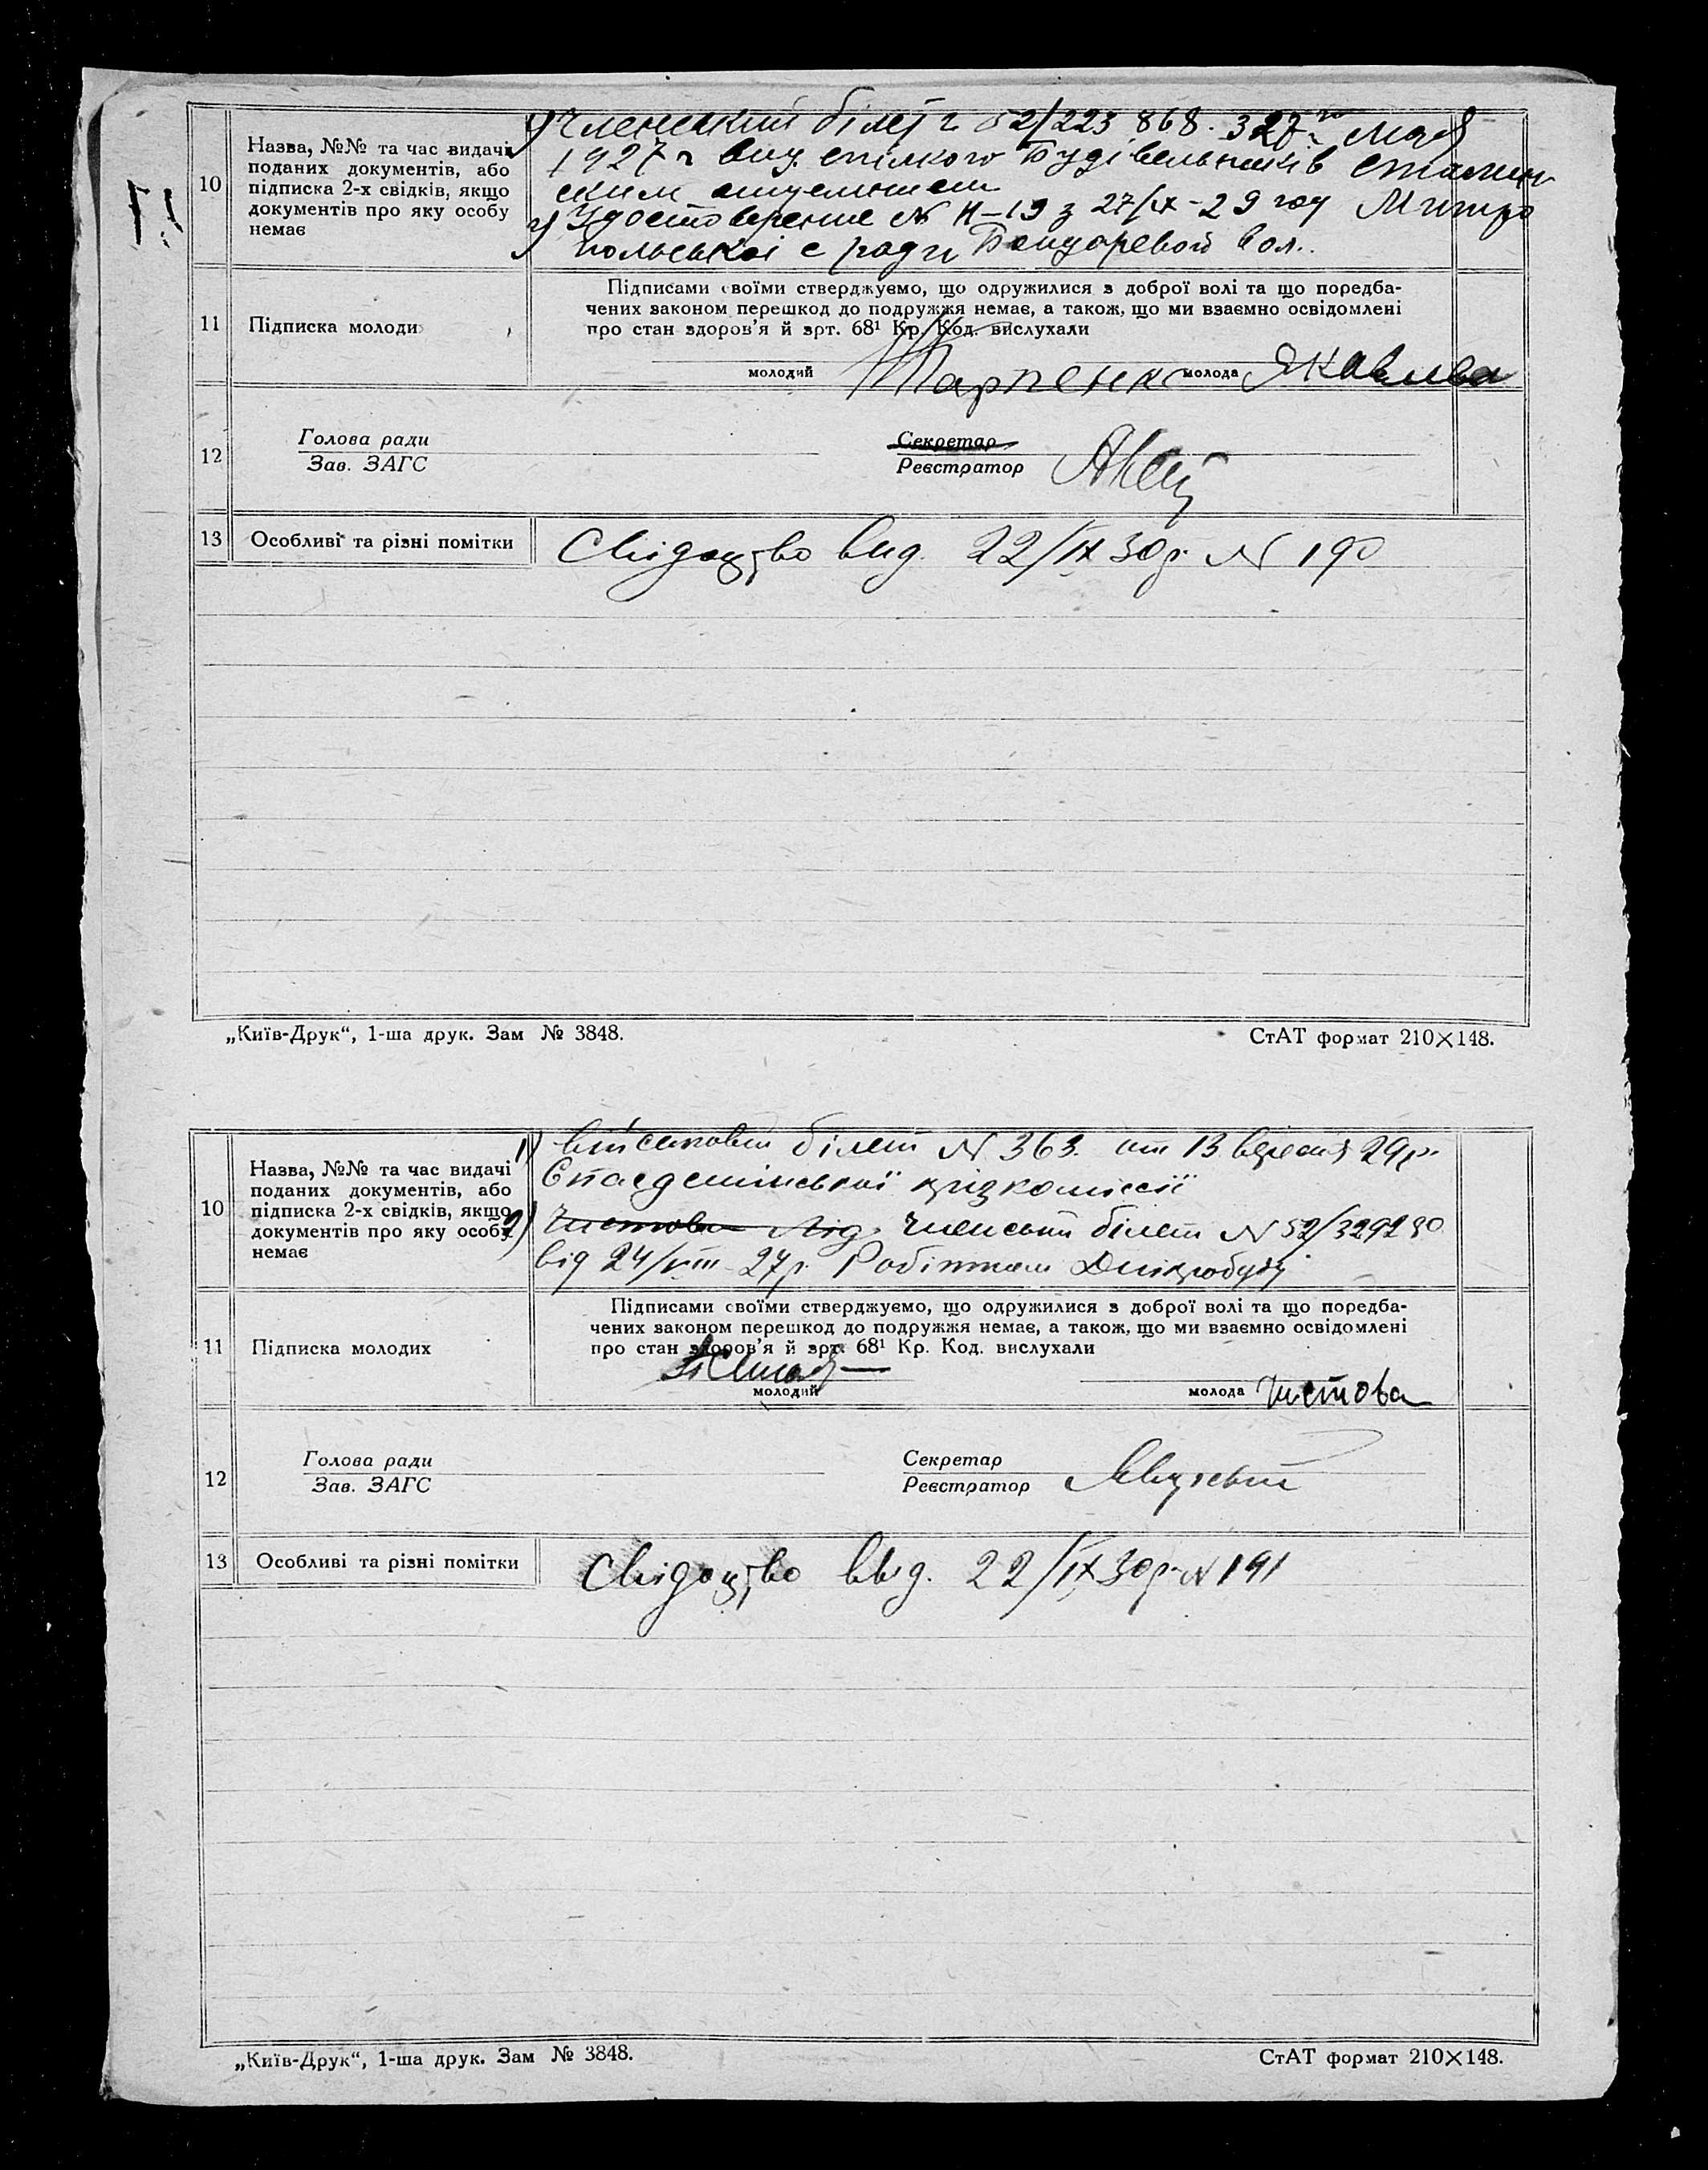 10
Назва, №№ та час видачі
поданих документів, або
підписка 2-х свідків, якщо
документів про яку особу
немає
1) Членський білет 52/223 868. з 27 мая
1927 г вид. спілкою Будівельників Сталин
ским
2) Удостоверение № Н-19 з 27/IX-29 году Митро
польської с ради Бондаревой Вол.
11
Підписка молоди
Підписами своїми стверджуємо, що одружилися з доброї волі та що поредба-
чених законом перешкод до подружжя немає, а також, що ми взаємно освідомлені
про стан здоров'я й зрт. 68¹ Кр. Код. вислухали
молодий молода Яковлева
12
Голова ради
Зав. ЗАГС
Секретар
Реєстратор
13 Особливі та різні помітки Свідоцтво вид. 22/IX 30р. № 190
„Київ-Друк“, 1-ша друк. Зам № 3848. СтАТ формат 210×148.
10
Назва, №№ та час видачі
поданих документів, або
підписка 2-х свідків, якщо
документів про яку особу
немає
1) Військовий білет № 363. от 13 вересня 29р.
2) Чистова Лід. Членський білет № 52/329290
від 24/VIII-27р. Робітком Дніпробуду
11
Підписка молодих
Підписами своїми стверджуємо, що одружилися з доброї волі та що поредба-
чених законом перешкод до подружжя немає, а також, що ми взаємно освідомлені
про стан здоров'я й зрт. 68¹ Кр. Код. вислухали
молодий молода Чистова
12
Голова ради
Зав. ЗАГС
Секретар
Реєстратор
13 Особливі та різні помітки Свідоцтво вид. 22/IX 30р. № 191
„Київ-Друк“, 1-ша друк. Зам № 3848. СтАТ формат 210×148.